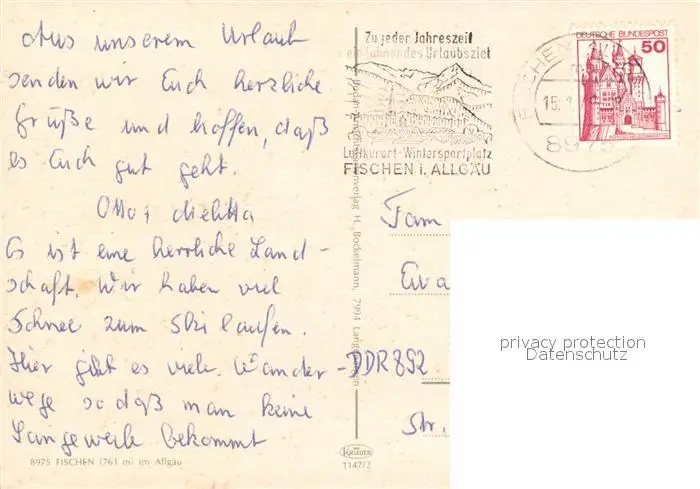 Aus unserem Urlaub
senden wir Euch herzliche
Grüße und hoffen, daß
es Euch gut geht.
Otto i
Es ist eine herrliche Land-
schaft. Wir haben viel
Schnee zum Ski laufen.
Hier gibt es viele Wander-
wege so daß man keine
Langeweile bekommt
8975 FISCHEN (761 m) im Allgäu
Zu jeder Jahreszeit
ein lohnendes Urlaubsziel
Luftkurort-Wintersportplatz
FISCHEN i. ALLGÄU
DEUTSCHE BUNDESPOST
50
15.1
897
H. Bockelmann, 7994
Fam
Eva
DDR 892
Str.
KRÜGER
1147/2
privacy protection
Datenschutz